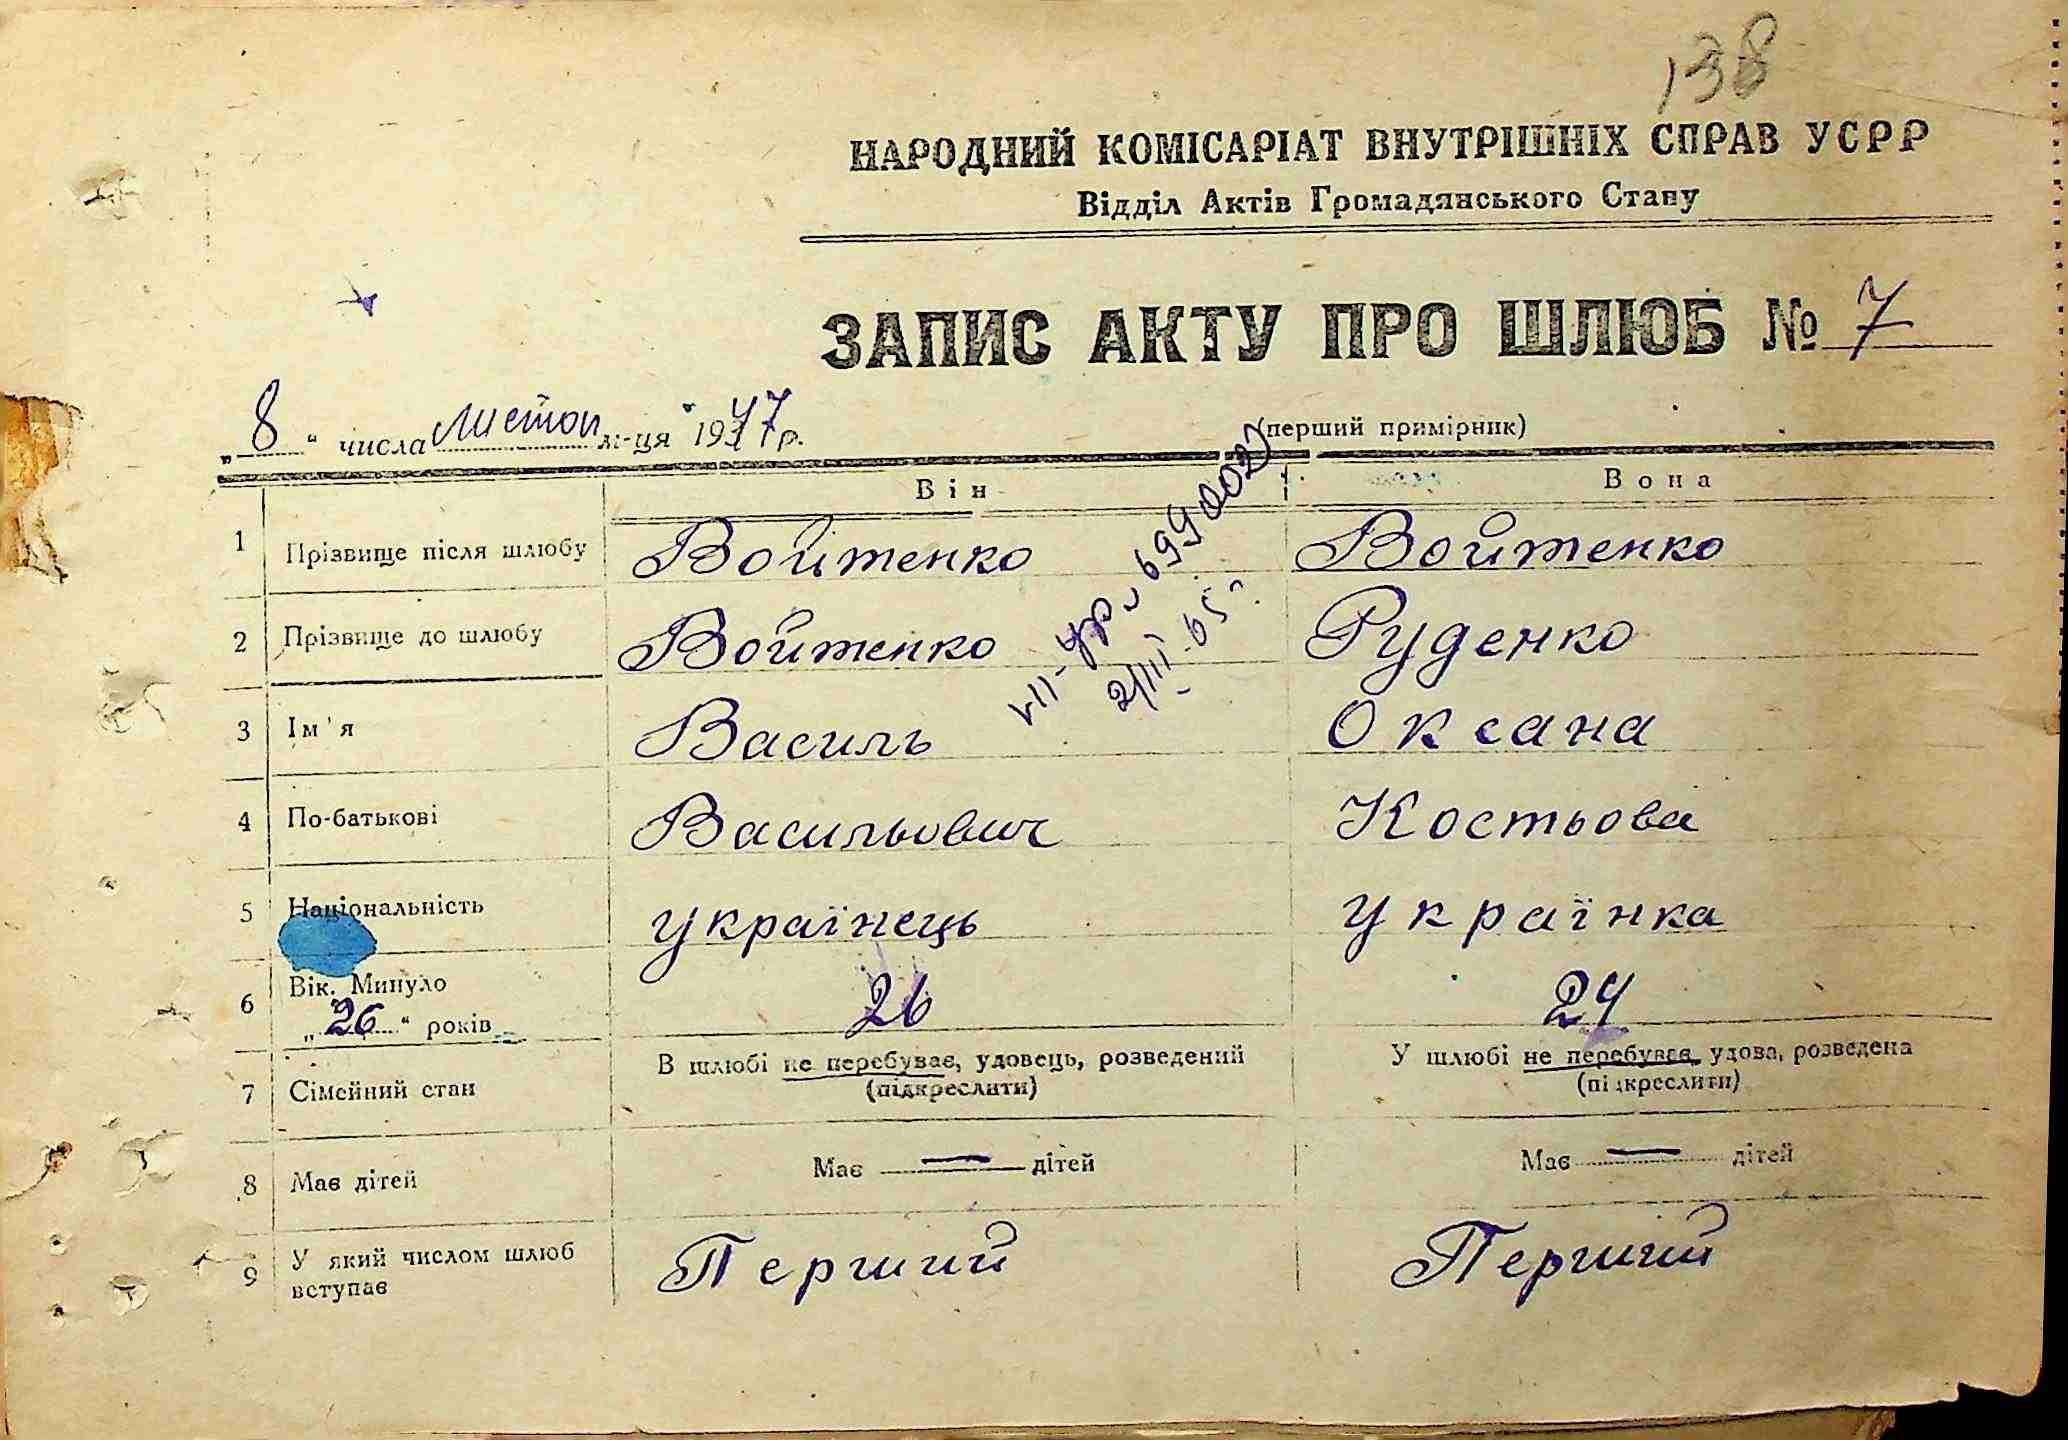 138
НАРОДНИЙ КОМІСАРІАТ ВНУТРІШНІХ СПРАВ УСРР
Відділ Актів Громадянського Стану
ЗАПИС АКТУ ПРО ШЛЮБ № 7
„8“ числа листоп м-ця 1947 р.
(перший примірник)
Він Вона
1 Прізвище після шлюбу Войтенко Войтенко
2 Прізвище до шлюбу Войтенко Руденко
3 Ім'я Василь Оксана
4 По-батькові Васильович Костьова
5 Національність українець українка
6 Вік. Минуло „26“ років 26 24
7 Сімейний стан В шлюбі не перебуває, удовець, розведений (підкреслити) У шлюбі не перебуває, удова, розведена (підкреслити)
8 Має дітей Має — дітей Має — дітей
9 У який числом шлюб вступає Перший Перший
2/III-65 г.